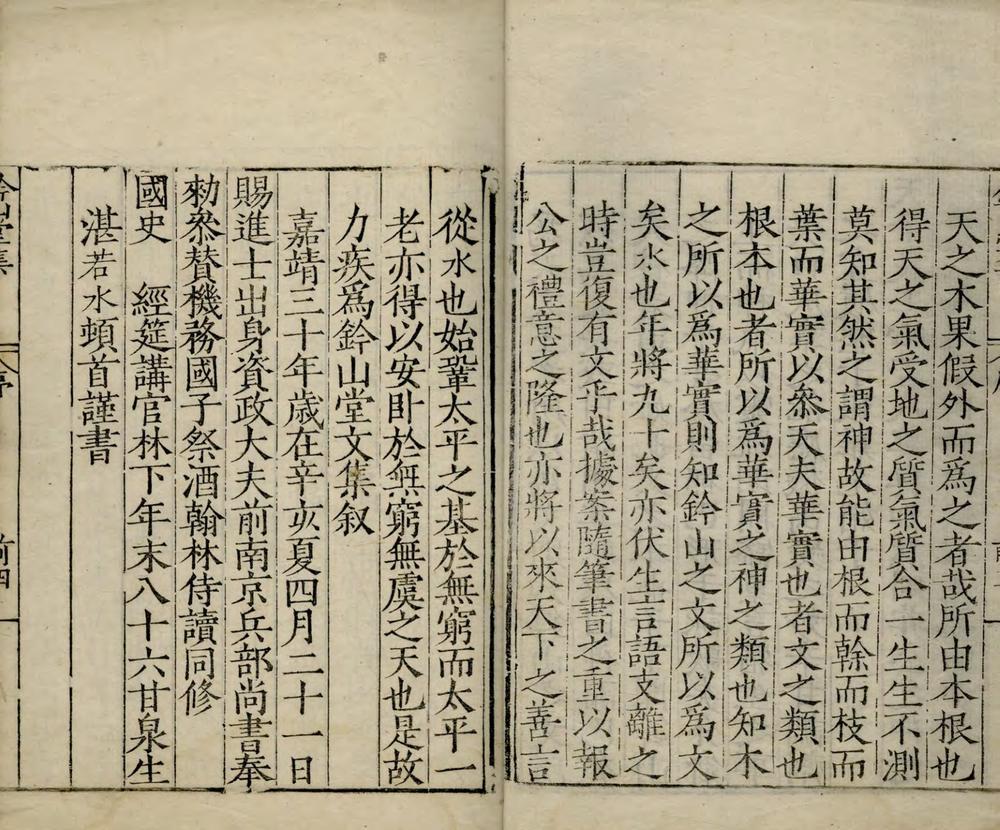 天之木果假外而為之者哉所由本根也
得天之氣受地之質氣質合一生生不測
莫知其然之謂神故能由根而榦而枝而
葉而華實以叅天夫華實也者文之類也
根本也者所以為華實之神之類也知木
之所以為華實則知鈐山之文所以為文
矣水也年將九十矣亦伏生言語支離之
時豈復有文乎哉據案隨筆書之重以報
公之禮意之隆也亦將以來天下之善言
從水也始鞏太平之基於無窮而太平一
老亦得以安卧於無窮無虞之天也是故
力疾為鈐山堂文集叙
嘉靖三十年歲在辛亥夏四月二十一日
賜進士出身資政大夫前南京兵部尚書奉
勑叅贊機務國子祭酒翰林侍讀同修
國史 經筵講官林下年末八十六甘泉生
湛若水頓首謹書